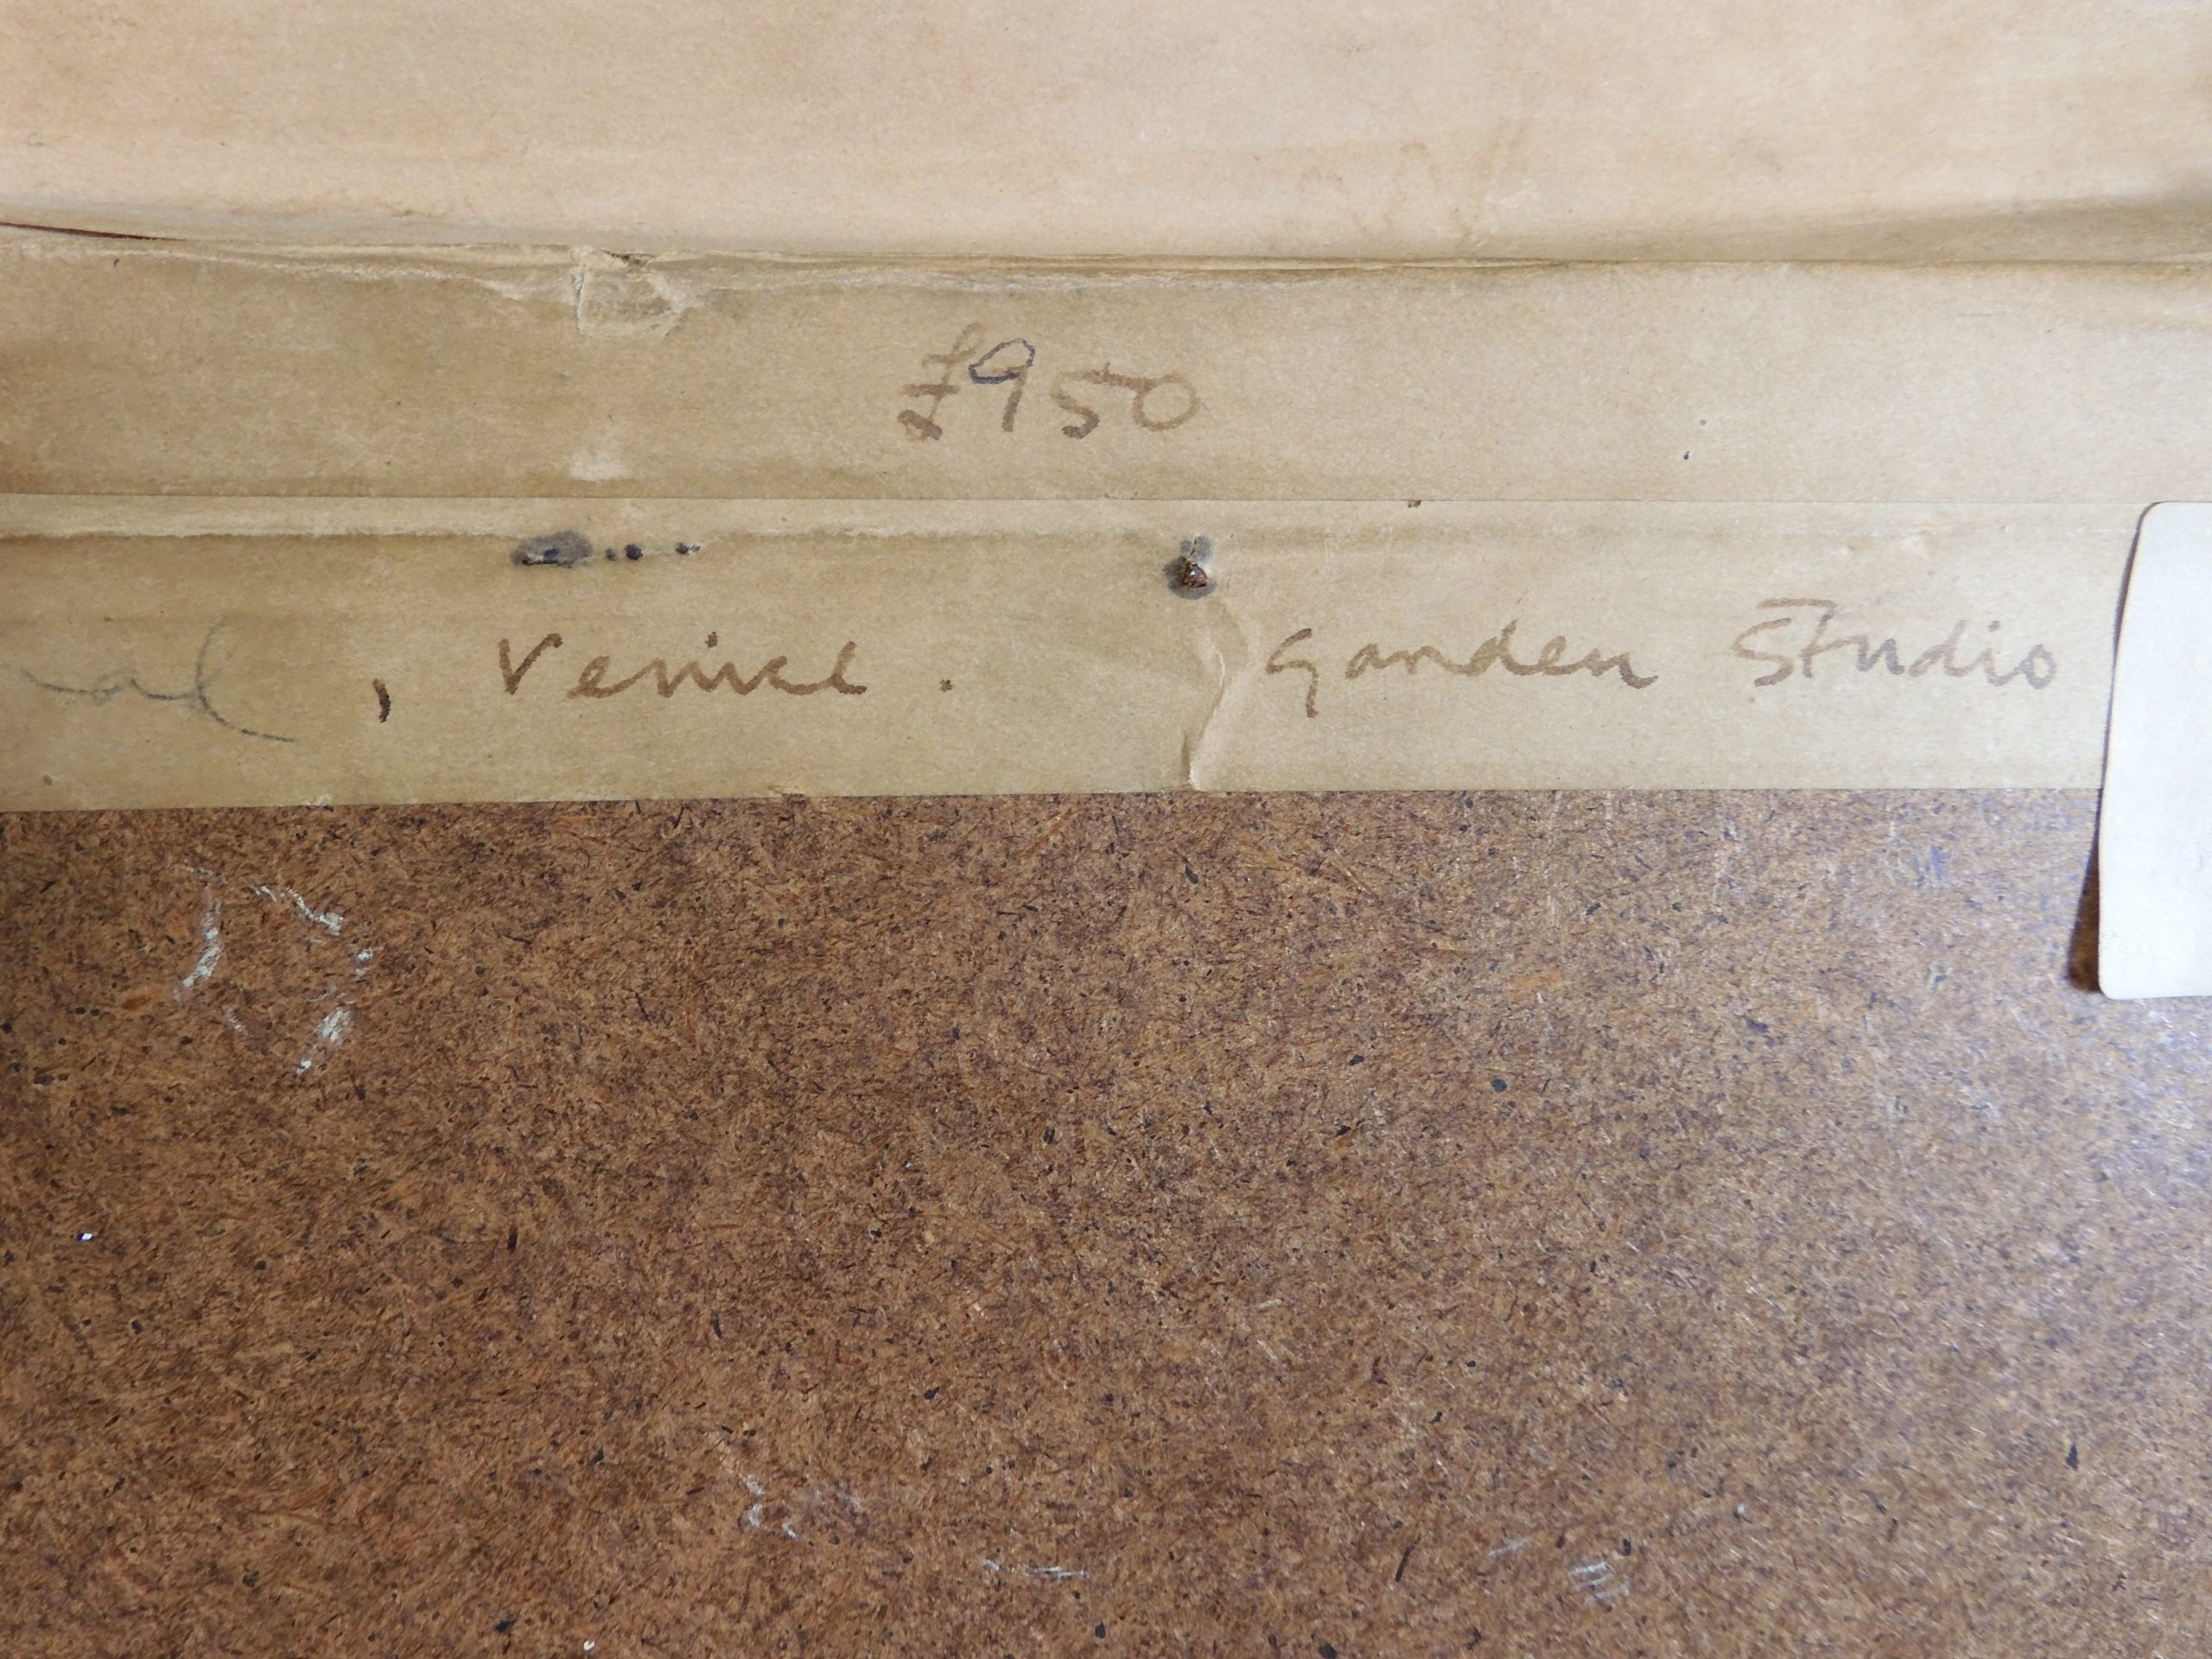 £950
nal, Venice. Garden Studio